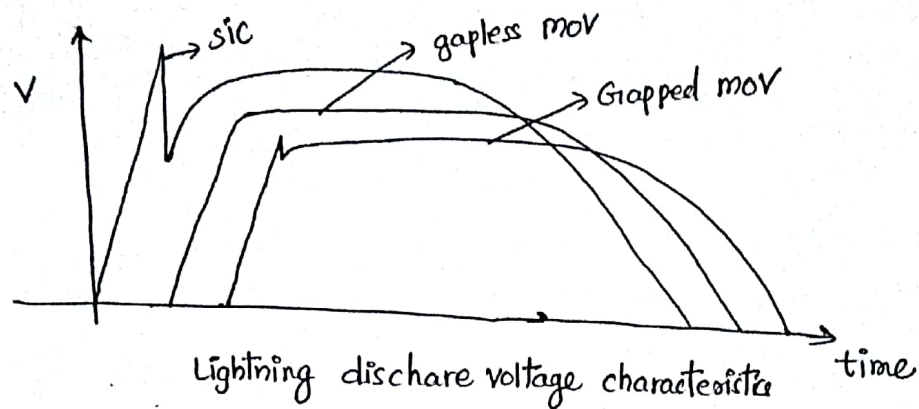 sic
gapless mov
V
Gapped mov
time
Lightning dischare voltage characteristics